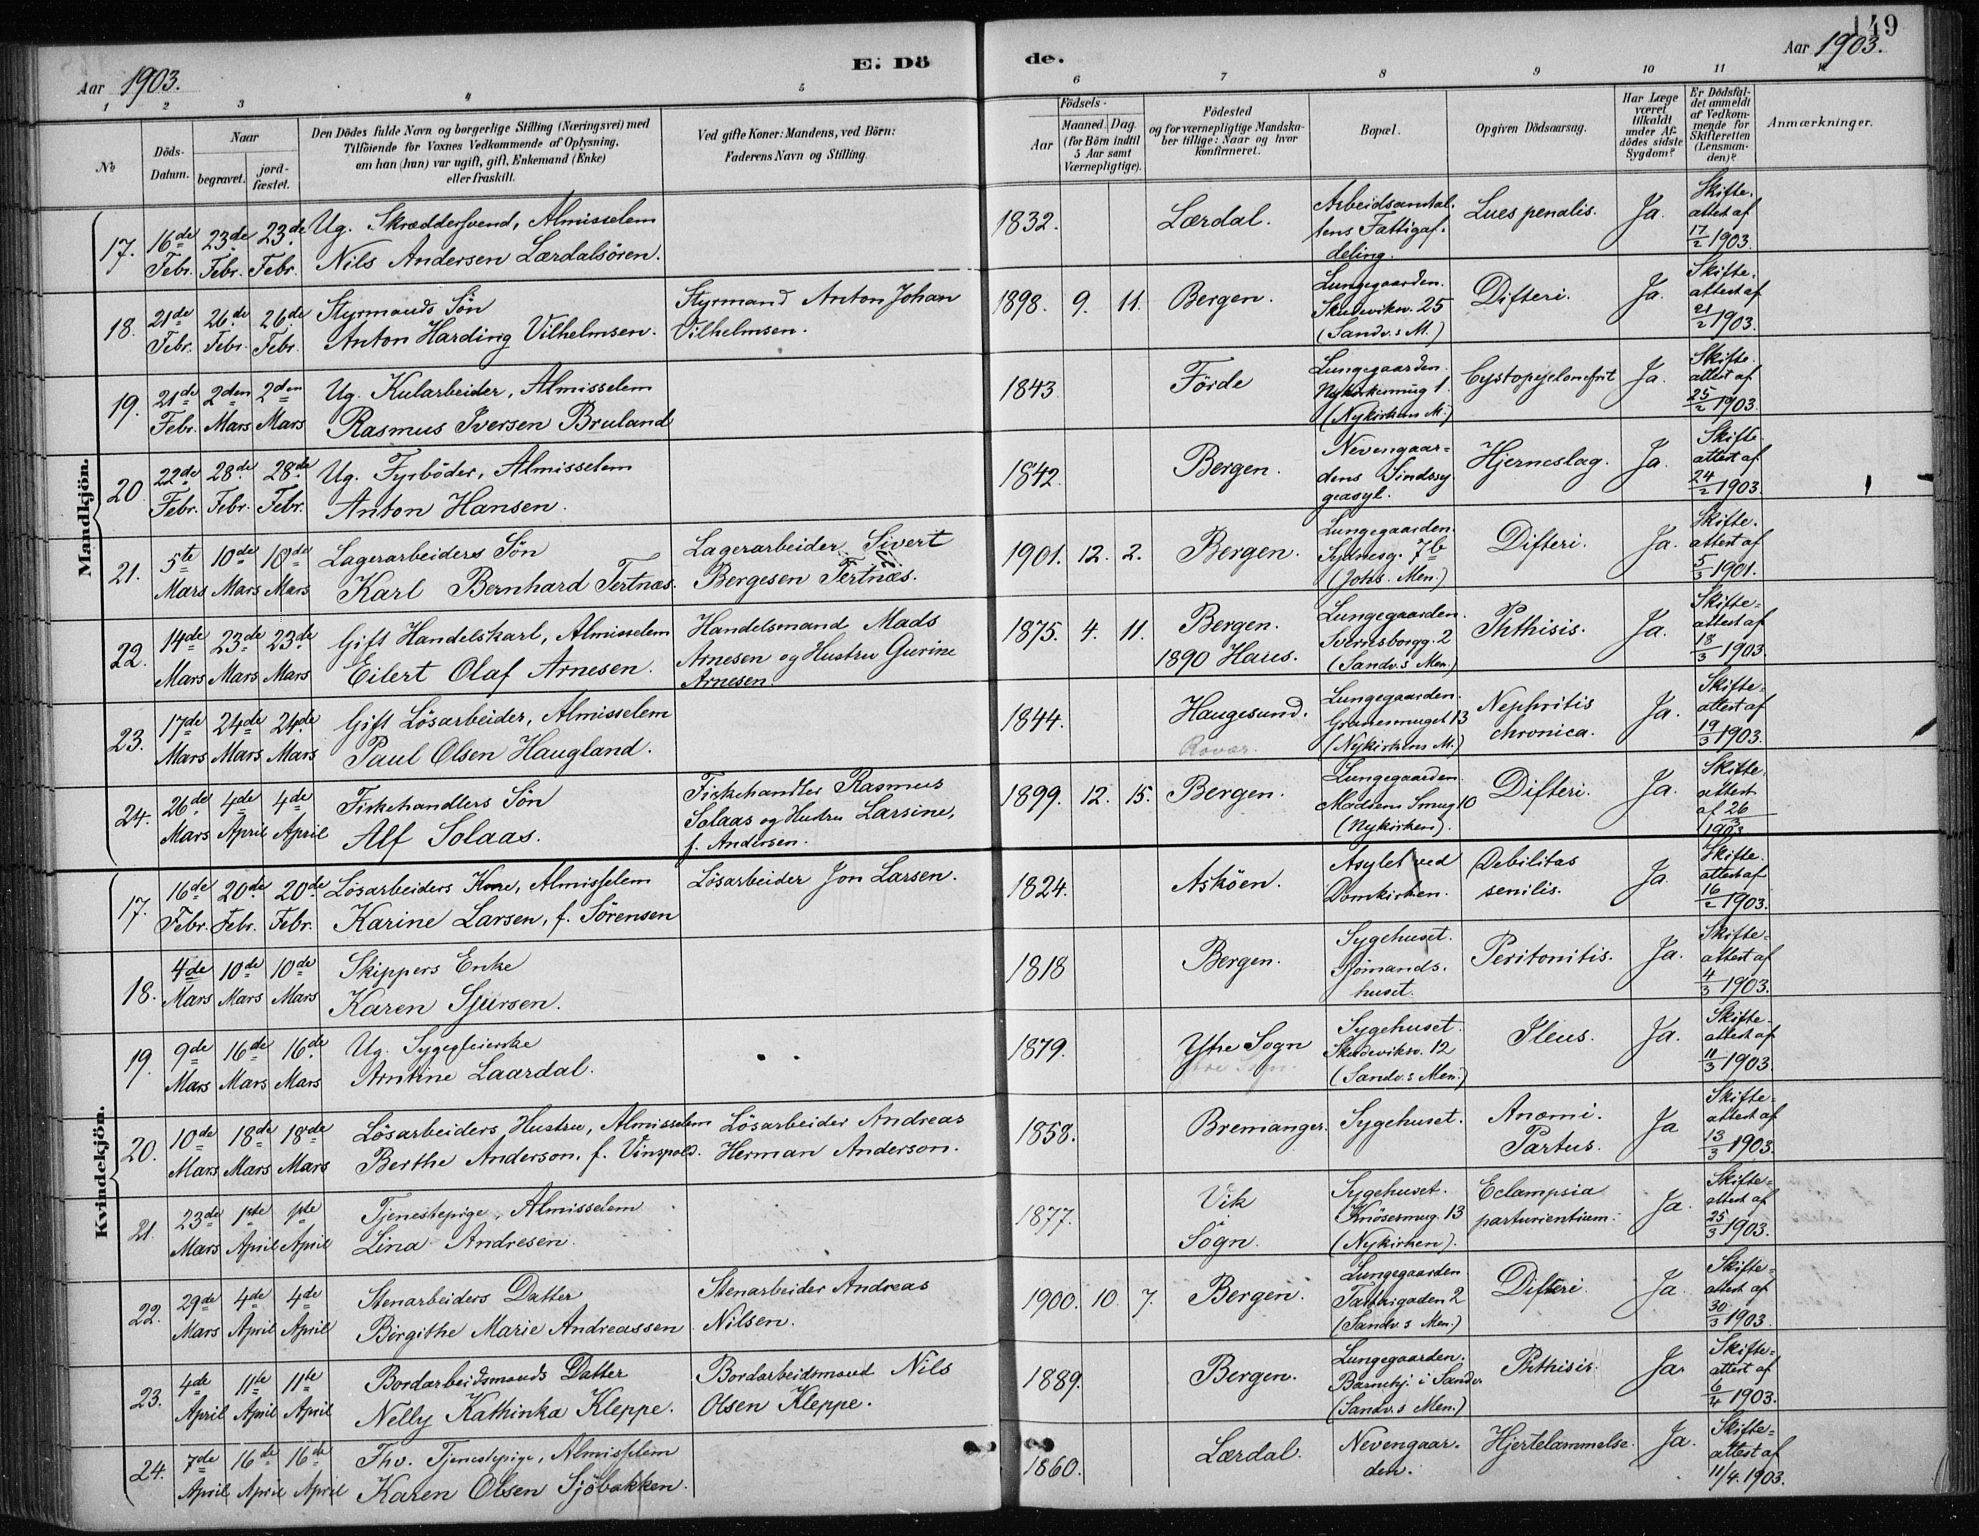 149
Aar 1903.
E. Dö
de.
Aar 1903.
1 2 3 4 5 6 7 8 9 10 11 12
No
Döds-
Datum.
Naar
begravet.
jord-
fæstet.
Den Dödes fulde Navn og borgerlige Stilling (Næringsvei) med
Tilföiende for Voxnes Vedkommende af Oplysning,
om han (hun) var ugift, gift, Enkemand (Enke)
eller fraskilt.
Ved gifte Koner: Mandens, ved Börn:
Faderens Navn og Stilling.
Födsels-
Aar
Maaned. Dag.
(for Börn indtil
5 Aar samt
Værnepligtige).
Födested
og for værnepligtige Mandska-
ber tillige: Naar og hvor
konfirmeret.
Bopæl.
Opgiven Dödsaarsag.
Har Læge
været
tilkaldt
under Af-
dödes sidste
Sygdom?
Er Dödsfal-
det anmeldt
af Vedkom-
mende for
Skifteretten
(Lensman-
den)?
Anmærkninger.
Mandkjön.
17. 16de Febr. 23de Febr. 23de Febr.
Ug. Skrædersvend, Almisselem
Nils Andersen Lærdalsören.
1832. Lærdal.
Arbeidsanstal-
tens Fattigaf-
deling.
Lues penalis. Ja.
Skifte-
attest af
17/2 1903.
18. 21de Febr. 26de Febr. 26de Febr.
Styrmands Sön
Anton Harding Vilhelmsen.
Styrmand Anton Johan
Vilhelmsen.
1898. 9. 11. Bergen.
Lungegaarden.
Skudeviksv. 25
(Sandv.s M.)
Difteri. Ja.
Skifte-
attest af
21/2 1903.
19. 21de Febr. 2den Mars 2den Mars
Ug. Kularbeider, Almisselem
Rasmus Iversen Bruland
1843 Förde
Lungegaarden.
Nykirkesmug 1
(Nykirkens M.)
Cystopyelonefrit Ja.
Skifte-
attest af
25/2 1903.
20. 22de Febr. 28de Febr. 28de Febr.
Ug. Fyrböder, Almisselem
Anton Hansen.
1842. Bergen.
Nevengaar-
dens Sindssy
geasyl.
Hjerneslag. Ja.
Skifte
attest af
24/2 1903.
21. 5te Mars 10de Mars 10de Mars
Lagerarbeiders Sön
Karl Bernhard Tertnæs.
Lagerarbeider Sivert
Bergesen Tertnæs.
1901. 12. 2. Bergen.
Lungegaarden.
Sydnesg. 7b
(Johs. Men.)
Difteri. Ja.
Skifte-
attest af
5/3 1901.
22. 14de Mars 23de Mars 23de Mars
Gift Handelskarl, Almisselem
Eilert Olaf Arnesen.
Handelsmand Mads
Arnesen og Hustru Gurine
Arnesen.
1875. 4. 11. Bergen.
1890 Haus.
Lungegaarden.
Sverresborgg. 2
(Sandv.s Men.)
Phthisis. Ja.
Skifte-
attest af
18/3 1903.
23. 17de Mars 24de Mars 24de Mars
Gift Lösarbeider, Almisselem
Paul Olsen Haugland.
1844. Haugesund.
Rovær.
Lungegaarden.
(Nykirkens M.)
Nephritis
chronica.
Ja.
Skifte-
attest af
19/3 1903.
24. 26de Mars 4de April 4de April
Fiskehandlers Sön
Alf Solaas.
Fiskehandler Rasmus
Solaas og Hustru Larsine,
f. Andersen.
1899. 12. 15. Bergen.
Lungegaarden.
Madsens Smug 10
(Nykirken).
Difteri. Ja.
Skifte-
attest
af 26/3
1903
Kvindekjön.
17. 16de Febr. 20de Febr. 20de Febr.
Lösarbeiders Kone, Almisselem
Karine Larsen, f. Sörensen
Lösarbeider Jon Larsen.
1824. Asköen.
Asylet ved
Domkirken.
Debilitas
senilis.
Ja.
Skifte-
attest af
16/2 1903.
18. 4de Mars 10de Mars 10de Mars
Skippers Enke
Karen Sjursen.
1818 Bergen.
Sygehuset.
Sjömands-
huset.
Peritonitis. Ja.
Skifte-
attest af
4/3 1903.
19. 9de Mars 16de Mars 16de Mars
Ug. Sygepleierske
Arntine Laardal.
1879. Ytre Sogn
Sygehuset.
Skudeviksv. 12
(Sandv.s Men.)
Ileus. Ja.
Skifte-
attest af
11/3 1903.
20. 10de Mars 18de Mars 18de Mars
Lösarbeiders Hustru, Almisselem
Berthe Anderson, f. Vinspold.
Lösarbeider Andreas
Herman Anderson.
1858. Bremanger. Sygehuset.
Anæmi.
Partus.
Ja
Skifte-
attest af
13/3 1903.
21. 23de Mars 1ste April 1ste April
Tjenestepige, Almisselem
Lina Andresen.
1877.
Vik
i
Sogn.
Sygehuset.
Knösesmug. 13
(Nykirken).
Eclampsia
parturientium.
Ja.
Skifte-
attest af
25/3 1903.
22. 29de Mars 4de April 4de April
Stenarbeiders Datter
Birgithe Marie Andreassen
Stenarbeider Andreas
Nilsen.
1900. 10. 7. Bergen.
Lungegaarden
(Sandv.s Men.)
Difteri. Ja.
Skifte-
attest af
30/3 1903.
23. 4de April 11te April 11te April
Bordarbeidsmands Datter
Nelly Kathinka Kleppe.
Bordarbeidsmand Nils
Olsen Kleppe.
1889. Bergen.
Lungegaarden.
Barnehj. i Sandv.
(Sandv.s Men.)
Phthisis. Ja.
Skifte-
attest af
6/4 1903.
24. 7de April 16de April 16de April
Fhv. Tjenestepige, Almisselem
Karen Olsen Sjöbakken.
1860. Lærdal.
Nevengaar-
den.
Hjertelammelse. Ja.
Skifte-
attest af
11/4. 1903.